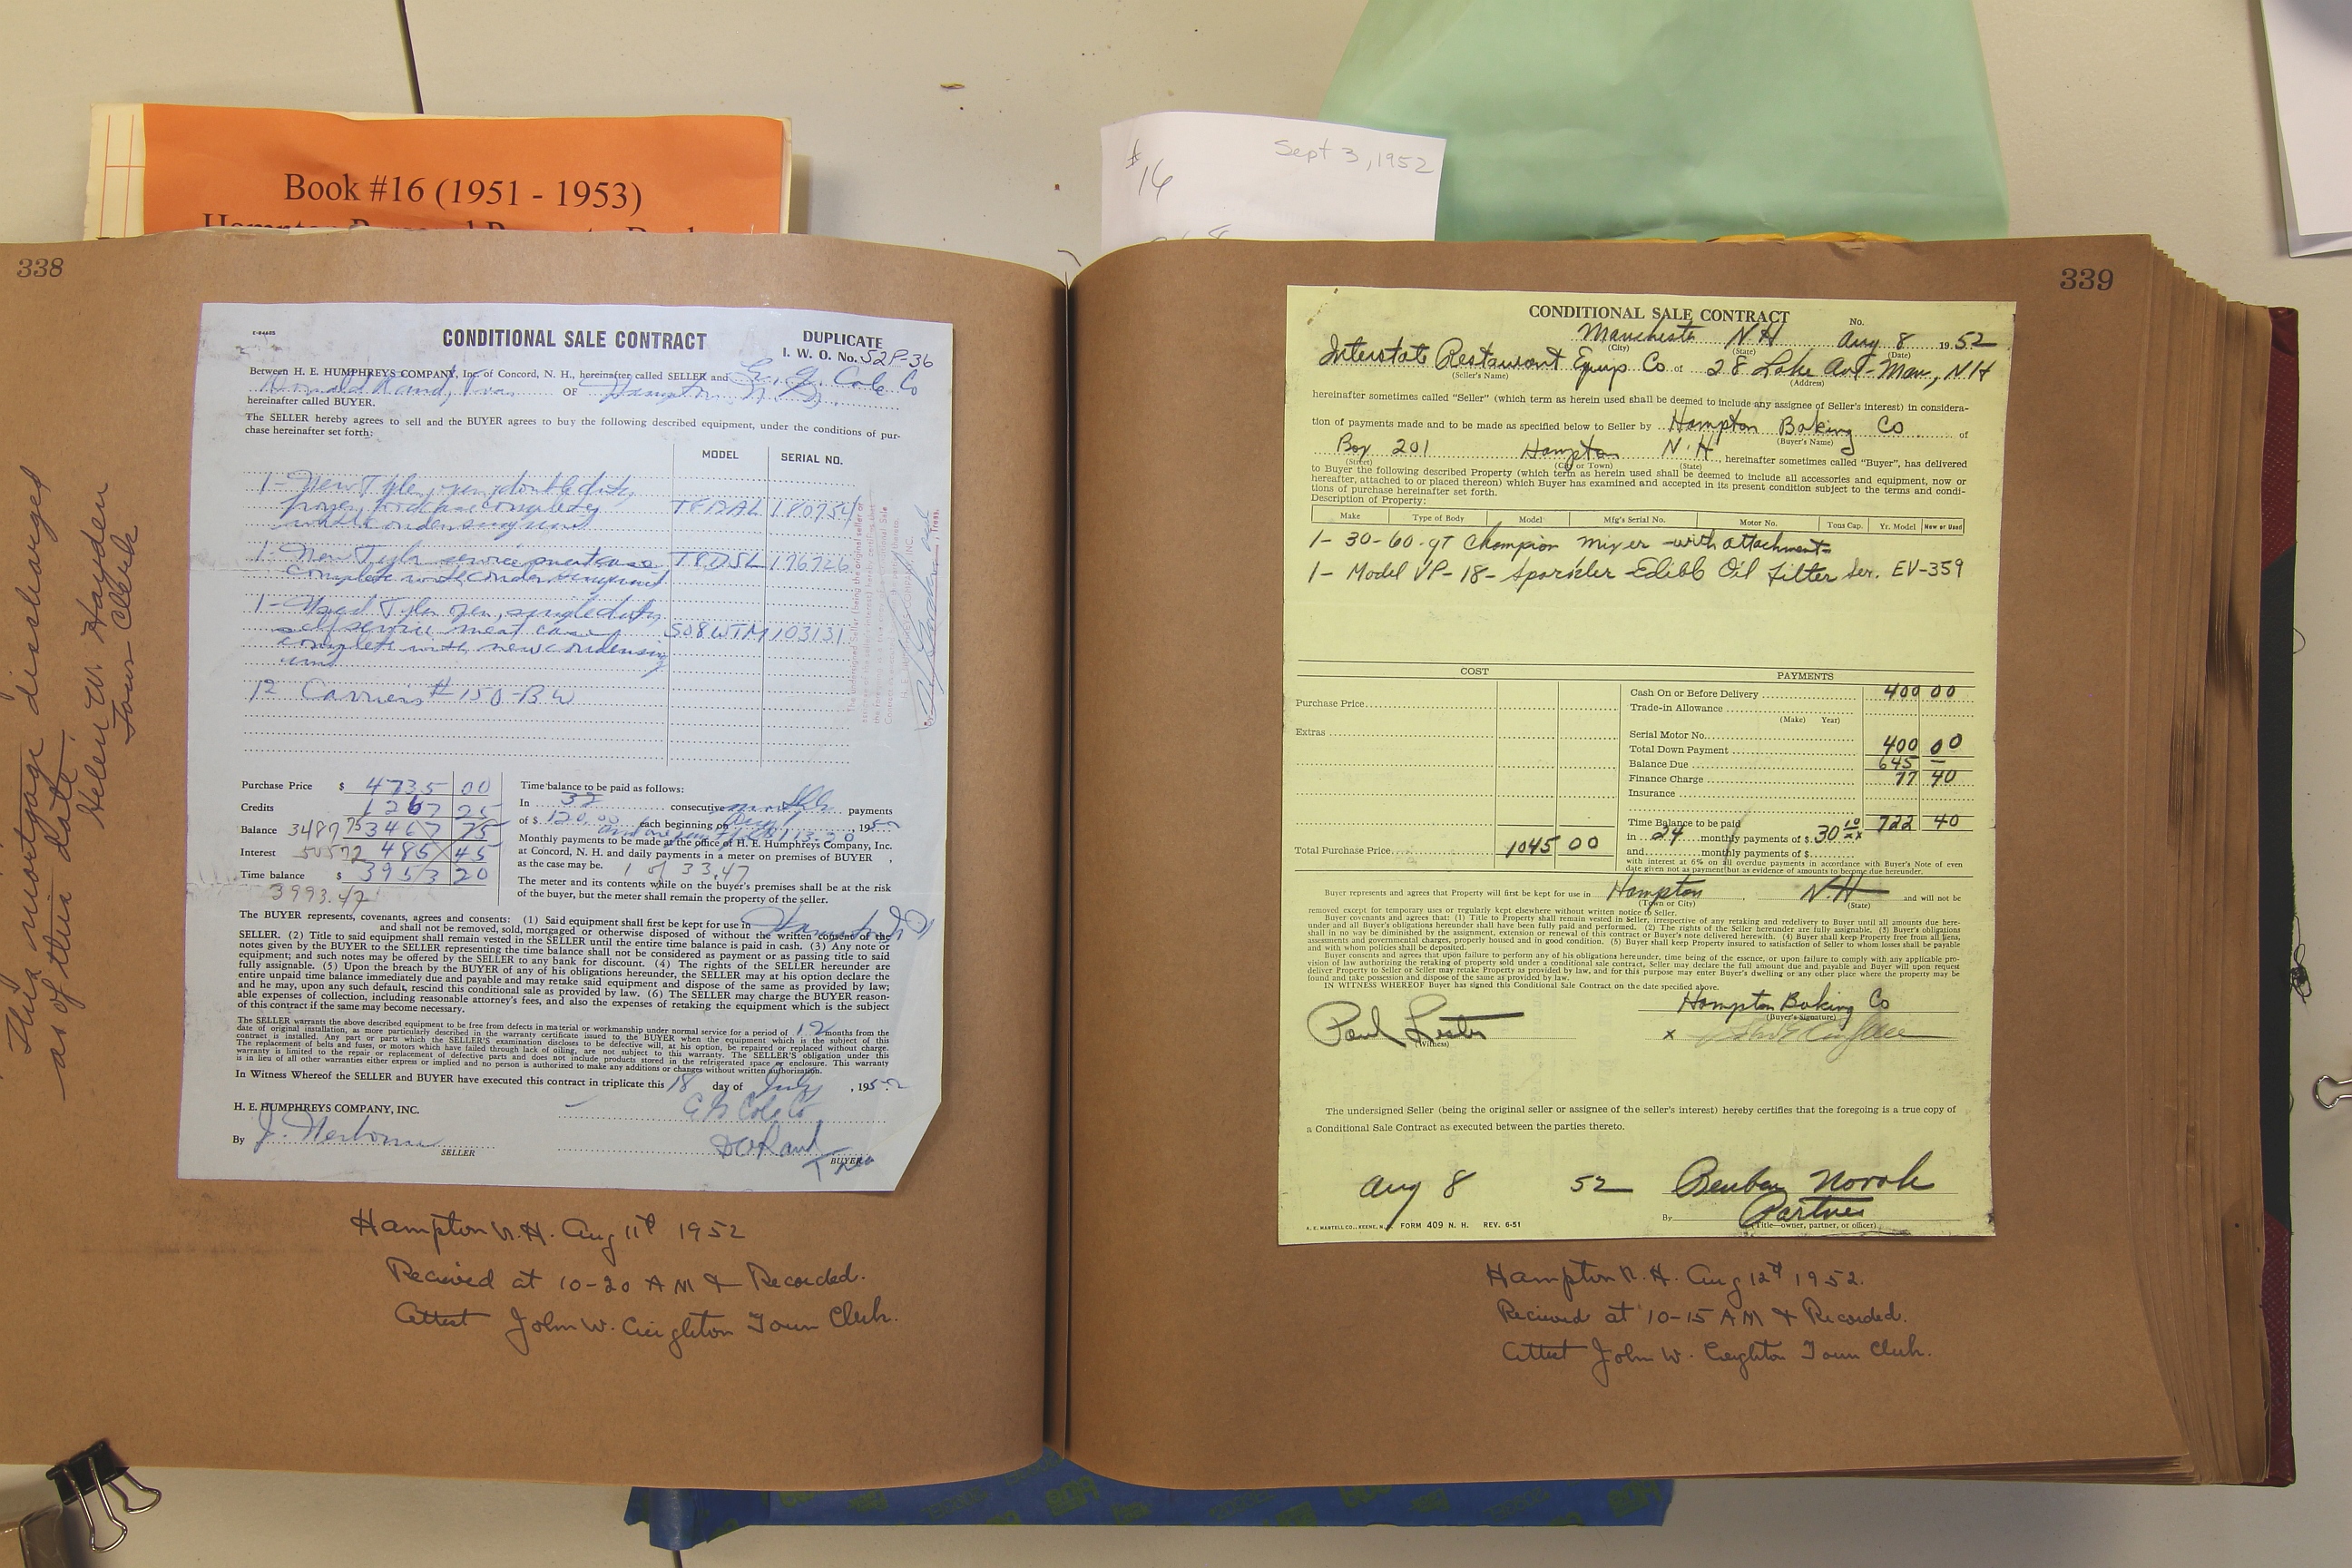 Book #16 (1951 - 1953)
# 16
Sept 3, 1952
338
This mortgage discharged
as of this date.
Helen W Hayden
Town Clerk
CONDITIONAL SALE CONTRACT
DUPLICATE
I. W. O. No. 52P-36
Between H. E. HUMPHREYS COMPANY, Inc. of Concord, N. H., hereinafter called SELLER and E. G. Cole Co
Donald Rand, Treas OF Hampton, N. H.
hereinafter called BUYER.
The SELLER hereby agrees to sell and the BUYER agrees to buy the following described equipment, under the conditions of pur-
chase hereinafter set forth:
MODEL SERIAL NO.
1- New Tyler open, double duty
T8DAL 180754
1- New Tyler service meat case T8DSL 176726
complete with condensing unit
1- Used Tyler open, single duty
self service meat case S08WTM 103131
complete with new condensing
unit
12 Carriers # 150-BW
Purchase Price $ 4735 00
Credits 1267 25
Balance 3487 75 3467 75
Interest 505 72 485 45
Time balance $ 3953 20
3993.47
Time balance to be paid as follows:
In 32 consecutive months payments
of $ 120.00 each beginning on Sept 1952
and one payment of 113.20
Monthly payments to be made at the office of H. E. Humphreys Company, Inc.
at Concord, N. H. and daily payments in a meter on premises of BUYER ,
as the case may be. 1 of 33.47
The meter and its contents while on the buyer's premises shall be at the risk
of the buyer, but the meter shall remain the property of the seller.
The BUYER represents, covenants, agrees and consents: (1) Said equipment shall first be kept for use in Hampton N H
and shall not be removed, sold, mortgaged or otherwise disposed of without the written consent of the
SELLER. (2) Title to said equipment shall remain vested in the SELLER until the entire time balance is paid in cash. (3) Any note or
notes given by the BUYER to the SELLER representing the time balance shall not be considered as payment or as passing title to said
equipment; and such notes may be offered by the SELLER to any bank for discount. (4) The rights of the SELLER hereunder are
fully assignable. (5) Upon the breach by the BUYER of any of his obligations hereunder, the SELLER may at his option declare the
entire unpaid time balance immediately due and payable and may retake said equipment and dispose of the same as provided by law;
and he may, upon any such default, rescind this conditional sale as provided by law. (6) The SELLER may charge the BUYER reason-
able expenses of collection, including reasonable attorney's fees, and also the expenses of retaking the equipment which is the subject
of this contract if the same may become necessary.
The SELLER warrants the above described equipment to be free from defects in material or workmanship under normal service for a period of 12 months from the
date of original installation, as more particularly described in the warranty certificate issued to the BUYER when the equipment which is the subject of this
contract is installed. Any part or parts which the SELLER'S examination discloses to be defective will, at his option, be repaired or replaced without charge.
The replacement of belts and fuses, or motors which have failed through lack of oiling, are not subject to this warranty. The SELLER'S obligation under this
warranty is limited to the repair or replacement of defective parts and does not include products stored in the refrigerated space or enclosure. This warranty
is in lieu of all other warranties either express or implied and no person is authorized to make any additions or changes without written authorization.
In Witness Whereof the SELLER and BUYER have executed this contract in triplicate this 18 day of July , 1952
H. E. HUMPHREYS COMPANY, INC.
E G Cole Co
By
SELLER
D W Rand
Treas
BUYER
Hampton N.H. Aug 11th 1952
Recieved at 10-20 AM & Recorded.
Attest John W. Creighton Town Clerk.
339
CONDITIONAL SALE CONTRACT
No.
Manchester N H Aug 8 1952
(City) (State) (Date)
Interstate Restaurant Equip Co of 28 Lake Ave-Man, NH
(Seller's Name) (Address)
hereinafter sometimes called "Seller" (which term as herein used shall be deemed to include any assignee of Seller's interest) in considera-
tion of payments made and to be made as specified below to Seller by Hampton Baking Co of
(Buyer's Name)
Box 201 Hampton N.H. , hereinafter sometimes called "Buyer", has delivered
(Street) (City or Town) (State)
to Buyer the following described Property (which term as herein used shall be deemed to include all accessories and equipment, now or
hereafter, attached to or placed thereon) which Buyer has examined and accepted in its present condition subject to the terms and condi-
tions of purchase hereinafter set forth.
Description of Property:
Make Type of Body Model Mfg's Serial No. Motor No. Tons Cap. Yr. Model New or Used
1- 30-60-qT Champion Mixer -with attachments
1- Model VP-18- Sparkler Edible Oil Filter Ser. EV-359
COST PAYMENTS
Purchase Price
Extras
Total Purchase Price 1045 00
Cash On or Before Delivery 400 00
Trade-in Allowance
(Make) Year)
Serial Motor No.
Total Down Payment 400 00
Balance Due 645 —
Finance Charge 77 40
Insurance
Time Balance to be paid 722 40
in 24 monthly payments of $ 30 10/xx
and monthly payments of $
with interest at 6% on all overdue payments in accordance with Buyer's Note of even
date given not as payment but as evidence of amounts to become due hereunder.
Buyer represents and agrees that Property will first be kept for use in Hampton , N.H and will not be
(Town or City) (State)
removed except for temporary uses or regularly kept elsewhere without written notice to Seller.
Buyer covenants and agrees that: (1) Title to Property shall remain vested in Seller, irrespective of any retaking and redelivery to Buyer until all amounts due here-
under and all Buyer's obligations hereunder shall have been fully paid and performed. (2) The rights of the Seller hereunder are fully assignable. (3) Buyer's obligations
shall in no way be diminished by the assignment, extension or renewal of this contract or Buyer's note delivered herewith. (4) Buyer shall keep Property free from all liens,
assessments and governmental charges, properly housed and in good condition. (5) Buyer shall keep Property insured to satisfaction of Seller to whom losses shall be payable
and with whom policies shall be deposited.
Buyer consents and agrees that upon failure to perform any of his obligations hereunder, time being of the essence, or upon failure to comply with any applicable pro-
vision of law authorizing the retaking of property sold under a conditional sale contract, Seller may declare the full amount due and payable and Buyer will upon request
deliver Property to Seller or Seller may retake Property as provided by law, and for this purpose may enter Buyer's dwelling or any other place where the property may be
found and take possession and dispose of the same as provided by law.
IN WITNESS WHEREOF Buyer has signed this Conditional Sale Contract on the date specified above.
Hampton Baking Co
(Buyer's Signature)
Paul Lester
(Witness)
x
The undersigned Seller (being the original seller or assignee of the seller's interest) hereby certifies that the foregoing is a true copy of
a Conditional Sale Contract as executed between the parties thereto.
Aug 8 52 Reuben Novak
By Partner
(Title—owner, partner, or officer)
A. E. MARTELL CO., KEENE, N. H. FORM 409 N. H. REV. 6-51
Hampton N. H. Aug 12th 1952.
Recieved at 10-15 AM & Recorded.
Attest John W. Creighton Town Clerk.